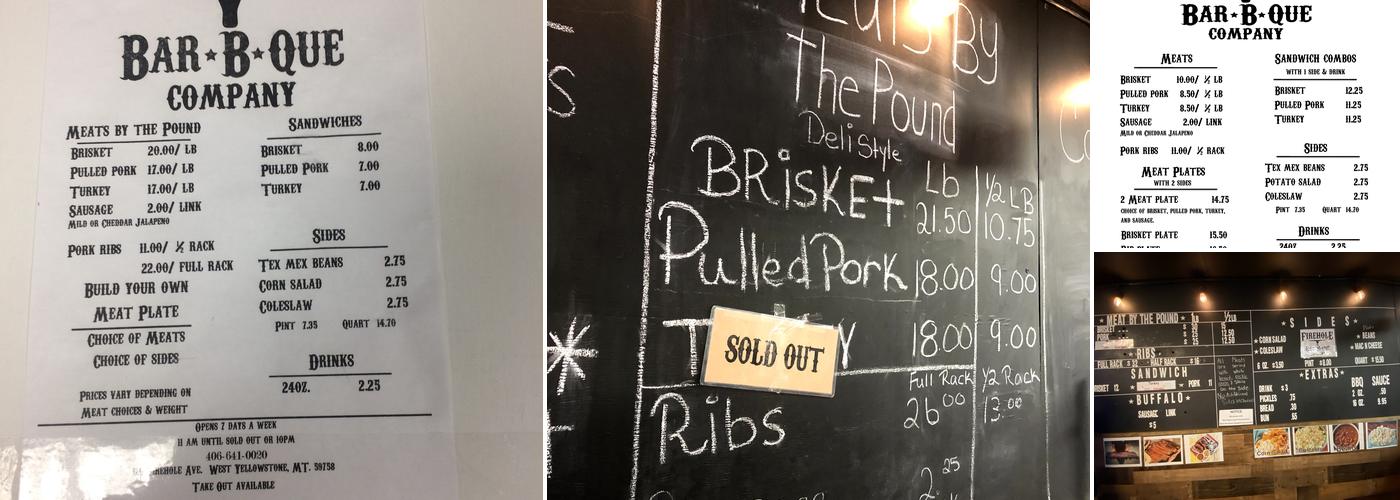 BAR★B★QUE
COMPANY
MEATS BY THE POUND
BRISKET 20.00/ LB
PULLED PORK 17.00/ LB
TURKEY 17.00/ LB
SAUSAGE 2.00/ LINK
MILD OR CHEDDAR JALAPENO
PORK RIBS 11.00/ ½ RACK
22.00/ FULL RACK
BUILD YOUR OWN
MEAT PLATE
CHOICE OF MEATS
CHOICE OF SIDES
PRICES VARY DEPENDING ON
MEAT CHOICES & WEIGHT
SANDWICHES
BRISKET 8.00
PULLED PORK 7.00
TURKEY 7.00
SIDES
TEX MEX BEANS 2.75
CORN SALAD 2.75
COLESLAW 2.75
PINT 7.35 QUART 14.70
DRINKS
24OZ. 2.25
OPENS 7 DAYS A WEEK
11 AM UNTIL SOLD OUT OR 10PM
406-641-0020
AVE. WEST YELLOWSTONE, MT. 59758
TAKE OUT AVAILABLE
By
The Pound
Deli Style
Lb ½ LB
BRiSKEt 21.50 10.75
Pulled Pork 18.00 9.00
SOLD OUT
18.00 9.00
Full Rack ½ Rack
Ribs 26.00 13.00
2.25
BAR★B★QUE
COMPANY
MEATS
BRISKET 10.00/ ½ LB
PULLED PORK 8.50/ ½ LB
TURKEY 8.50/ ½ LB
SAUSAGE 2.00/ LINK
MILD OR CHEDDAR JALAPENO
PORK RIBS 11.00/ ½ RACK
MEAT PLATES
WITH 2 SIDES
2 MEAT PLATE 14.75
CHOICE OF BRISKET, PULLED PORK, TURKEY,
AND SAUSAGE.
BRISKET PLATE 15.50
SANDWICH COMBOS
WITH 1 SIDE & DRINK
BRISKET 12.25
PULLED PORK 11.25
TURKEY 11.25
SIDES
TEX MEX BEANS 2.75
POTATO SALAD 2.75
COLESLAW 2.75
PINT 7.35 QUART 14.70
DRINKS
24OZ 2.25
★ MEAT BY THE POUND ★ 1LB ½LB
BRISKET
★ RIBS ★
FULL RACK $ 32 HALF RACK $ 16
SANDWICH
PORK 11
★ BUFFALO ★
SAUSAGE LINK
$5
★ SIDES ★
★ CORN SALAD
★ COLESLAW
FIREHOLE
★ BEANS
★ MAC N CHEESE
6 OZ. $3.50 PINT QUART $ 15.50
★ EXTRAS ★
DRINK $ 3
PICKLES .35
BREAD .30
BUN .65
BBQ SAUCE
2 OZ. .50
16 OZ. 9.95
NOTICE